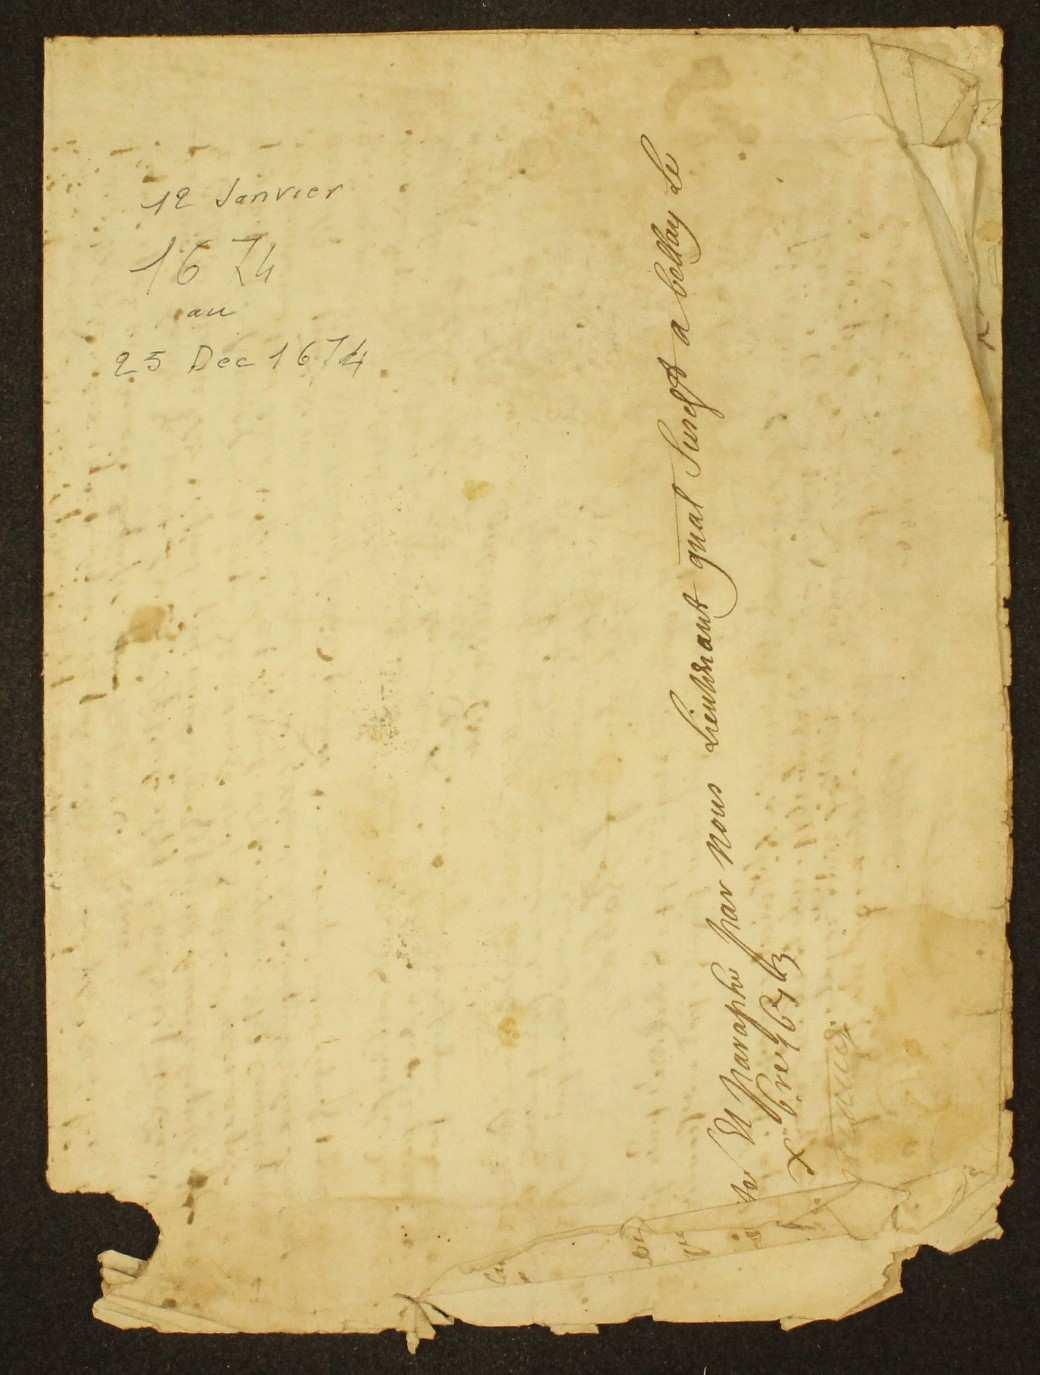 12 Janvier
1674
au
25 Dec 1674
Et paraphé par nous Lieutenant gnal a bellay le
xbre 1673